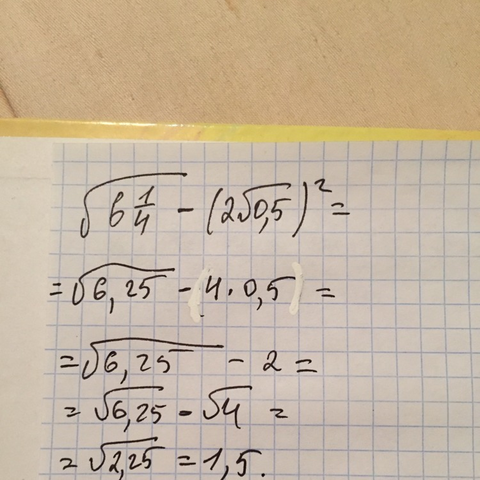 √6 1/4 - (2√0,5)² =
= √6,25 - (4·0,5) =
= √6,25 - 2 =
= √6,25 - √4 =
= √2,25 = 1,5.